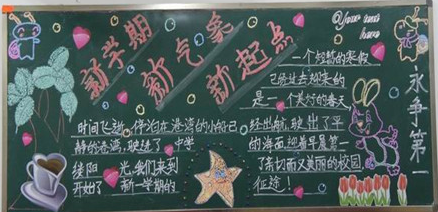 新学期
新气象
新起点
Your text
here
一个短暂的寒假
已经过去迎来的
是一个美好的春天
时间飞逝 停泊在港湾的小船已
经出航,驶出了平
静的港湾,驶进了
的海面,迎着早晨第一
缕阳光,我们来到
了亲切而又美丽的校园
开始了新一学期的
征途!
永争第一